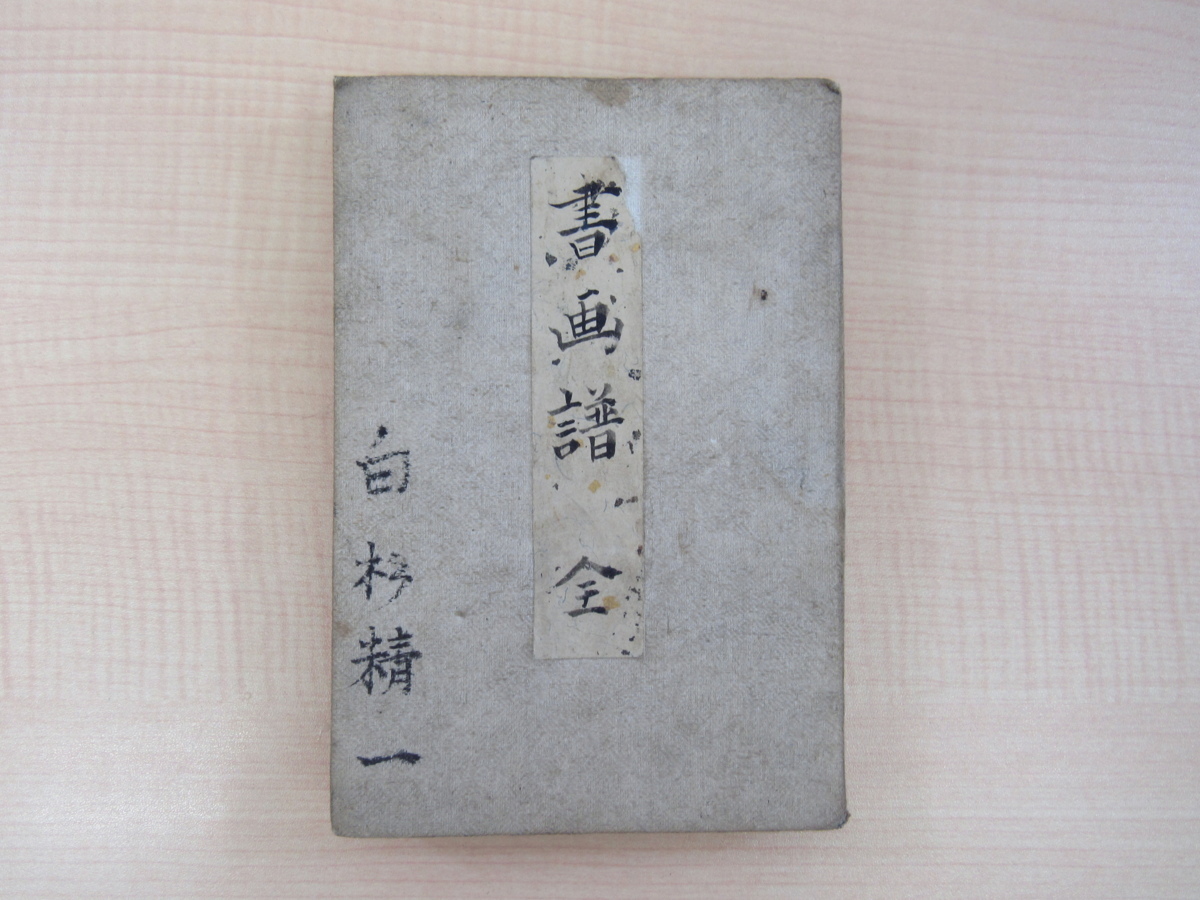 書画譜 全
白杉精一